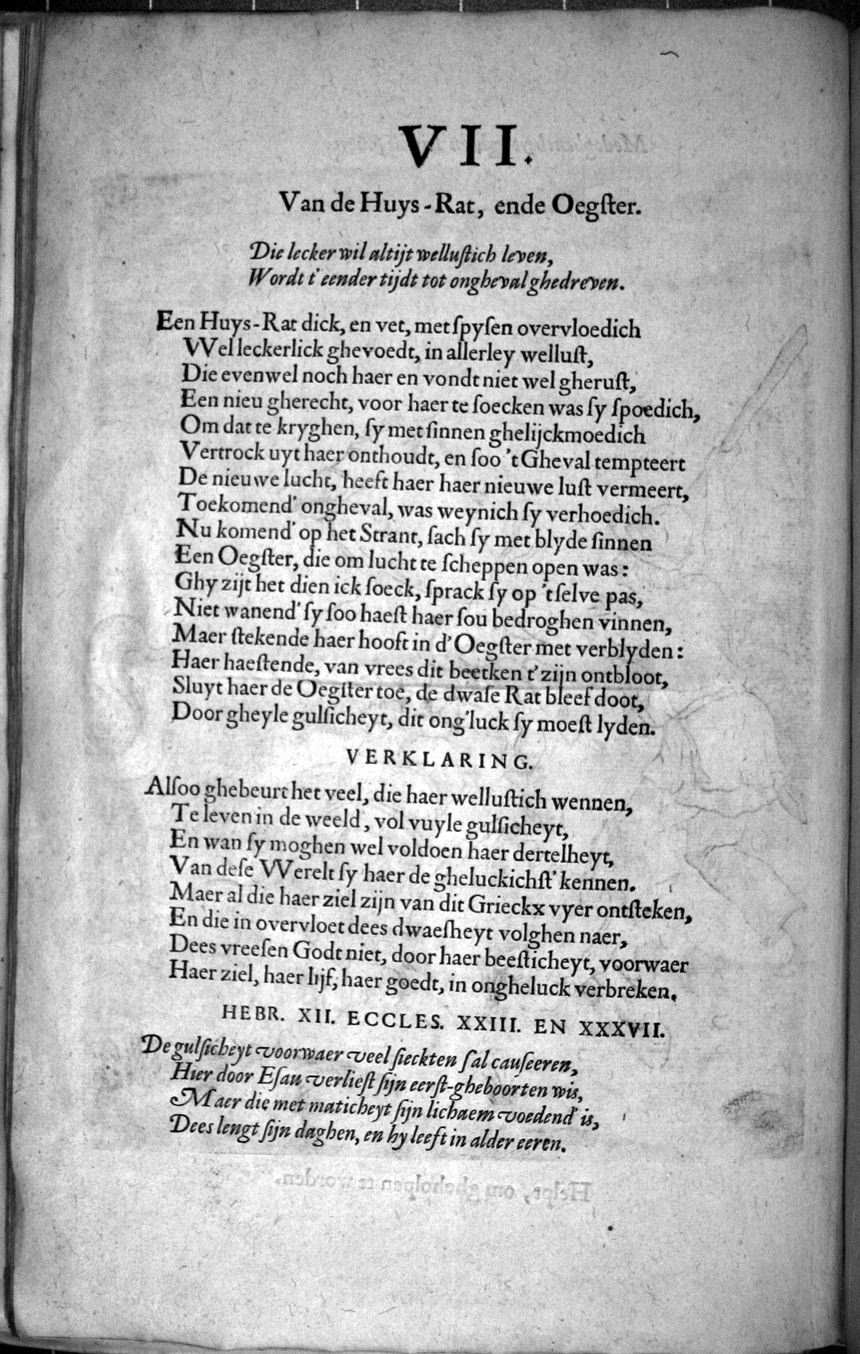 VII.
Van de Huys-Rat, ende Oegſter.
Die lecker wil altijt welluſtich leven,
Wordt t'eender tijdt tot ongheval ghedreven.
Een Huys-Rat dick, en vet, met ſpyſen overvloedich
Wel leckerlick ghevoedt, in allerley welluſt,
Die evenwel noch haer en vondt niet wel gheruſt,
Een nieu gherecht, voor haer te ſoecken was ſy ſpoedich,
Om dat te kryghen, ſy met ſinnen ghelijckmoedich
Vertrock uyt haer onthoudt, en ſoo 't Gheval tempteert
De nieuwe lucht, heeft haer haer nieuwe luſt vermeert,
Toekomend' ongheval, was weynich ſy verhoedich.
Nu komend' op het Strant, ſach ſy met blyde ſinnen
Een Oegſter, die om lucht te ſcheppen open was:
Ghy zijt het dien ick ſoeck, ſprack ſy op 't ſelve pas,
Niet wanend' ſy ſoo haeſt haer ſou bedroghen vinnen,
Maer ſtekende haer hooft in d'Oegſter met verblyden:
Haer haeſtende, van vrees dit beetken t'zijn ontbloot,
Sluyt haer de Oegſter toe, de dwaſe Rat bleef doot,
Door gheyle gulſicheyt, dit ong'luck ſy moeſt lyden.
VERKLARING.
Alſoo ghebeurt het veel, die haer welluſtich wennen,
Te leven in de weeld, vol vuyle gulſicheyt,
En wan ſy moghen wel voldoen haer dertelheyt,
Van deſe Werelt ſy haer de gheluckichſt' kennen.
Maer al die haer ziel zijn van dit Grieckx vyer ontſteken,
En die in overvloet dees dwaeſheyt volghen naer,
Dees vreeſen Godt niet, door haer beeſticheyt, voorwaer
Haer ziel, haer lijf, haer goedt, in ongheluck verbreken.
HEBR. XII. ECCLES. XXIII. EN XXXVII.
De gulſicheyt voorwaer veel ſieckten ſal cauſeeren,
Hier door Eſau verlieſt ſijn eerſt-gheboorten wis,
Maer die met maticheyt ſijn lichaem voedend' is,
Dees lengt ſijn daghen, en hy leeft in alder eeren.
Helpt, om gheholpen te worden.